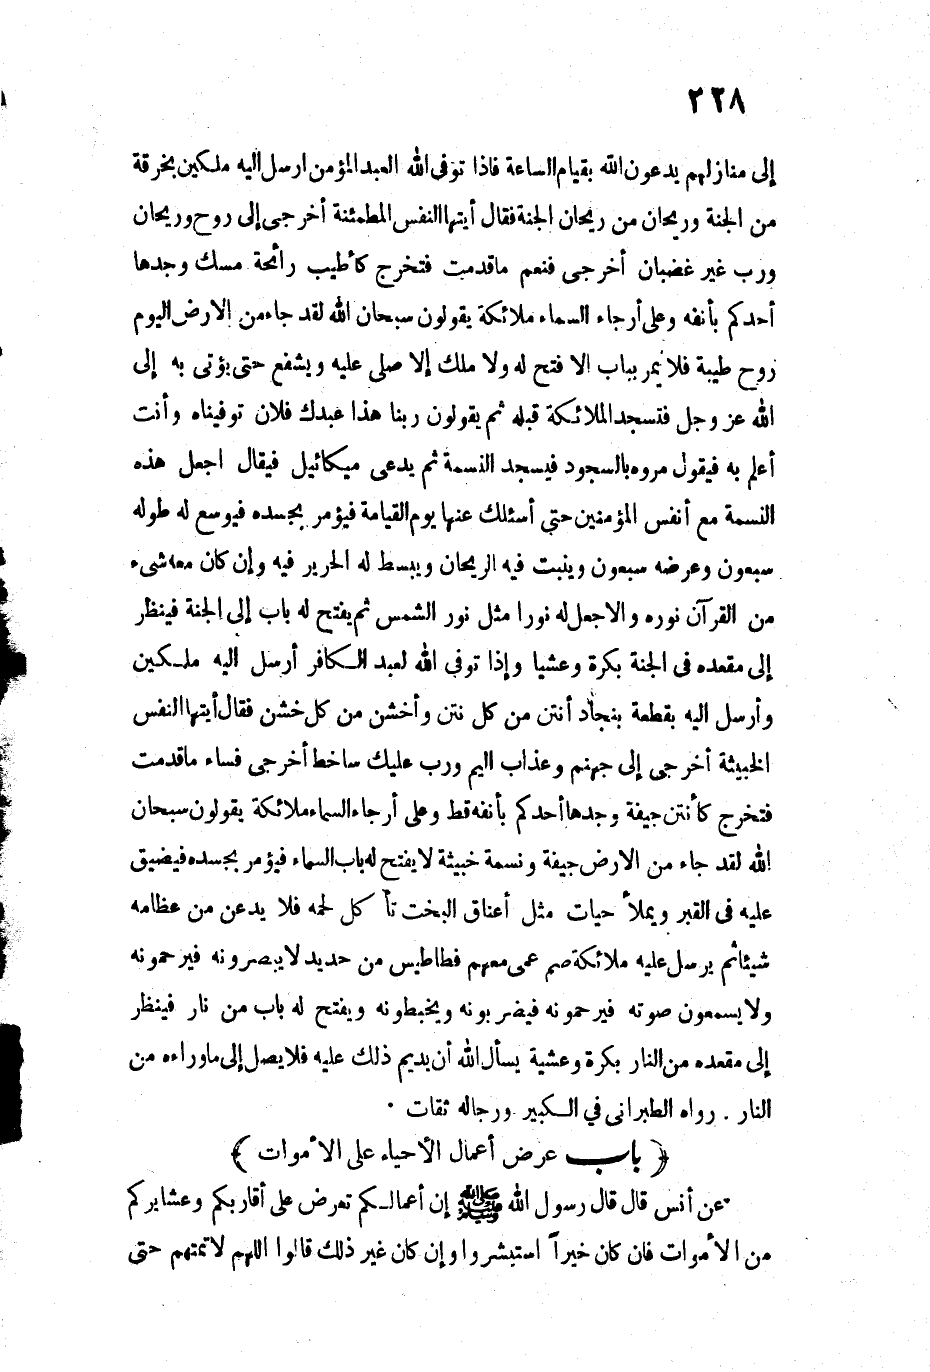 ٢٢٨
إلى منازلهم يدعون الله بقيام الساعة فاذا توفى الله العبد المؤمن ارسل اليه ملكين بخرقة
من الجنة وريحان من ريحان الجنة فقال أيتها النفس المطمئنة أخرجى إلى روح وريحان
ورب غير غضبان أخرجى فنعم ماقدمت فتخرج كأطيب رائحة مسك وجدها
أحدكم بأنفه وعلى أرجاء السماء ملائكة يقولون سبحان الله لقد جاء من الارض اليوم
روح طيبة فلا يمر بباب الا فتح له ولا ملك إلا صلى عليه ويشفع حتى يؤتى به إلى
الله عز وجل فتسجد الملائكة قبله ثم يقولون ربنا هذا عبدك فلان توفيناه وأنت
أعلم به فيقول مروه بالسجود فيسجد النسمة ثم يدعى ميكائيل فيقال اجعل هذه
النسمة مع أنفس المؤمنين حتى أسئلك عنها يوم القيامة فيؤمر بجسده فيوسع له طوله
سبعون وعرضه سبعون وينبت فيه الريحان ويبسط له الحرير فيه وإن كان معه شىء
من القرآن نوره والا جعل له نورا مثل نور الشمس ثم يفتح له باب إلى الجنة فينظر
إلى مقعده فى الجنة بكرة وعشيا وإذا توفى الله لعبد الكافر أرسل اليه ملكين
وأرسل اليه بقطعة بنجاد أنتن من كل نتن وأخشن من كل خشن فقال أيتها النفس
الخبيثة أخرجى إلى جهنم وعذاب اليم ورب عليك ساخط أخرجى فساء ماقدمت
فتخرج كأنتن جيفة وجدها أحدكم بأنفه قط وعلى أرجاء السماء ملائكة يقولون سبحان
الله لقد جاء من الارض جيفة ونسمة خبيثة لا يفتح له باب السماء فيؤمر بجسده فيضيق
عليه فى القبر ويملأ حيات مثل أعناق البخت تأ كل لحمه فلا يدعن من عظامه
شيئا ثم يرسل عليه ملائكة صم عمى معهم فطاطيس من حديد لا يبصرونه فيرحمونه
ولا يسمعون صوته فيرحمونه فيضربونه ويخبطونه ويفتح له باب من نار فينظر
إلى مقعده من النار بكرة وعشية يسأل الله أن يديم ذلك عليه فلا يصل إلى ماوراءه من
النار . رواه الطبرانى في الكبير ورجاله ثقات .
﴿ باب عرض أعمال الأحياء على الأموات ﴾
عن أنس قال قال رسول الله ﷺ إن أعمالكم تعرض على أقاربكم وعشايركم
من الأموات فان كان خيراً استبشروا وإن كان غير ذلك قالوا اللهم لا تمتهم حتى